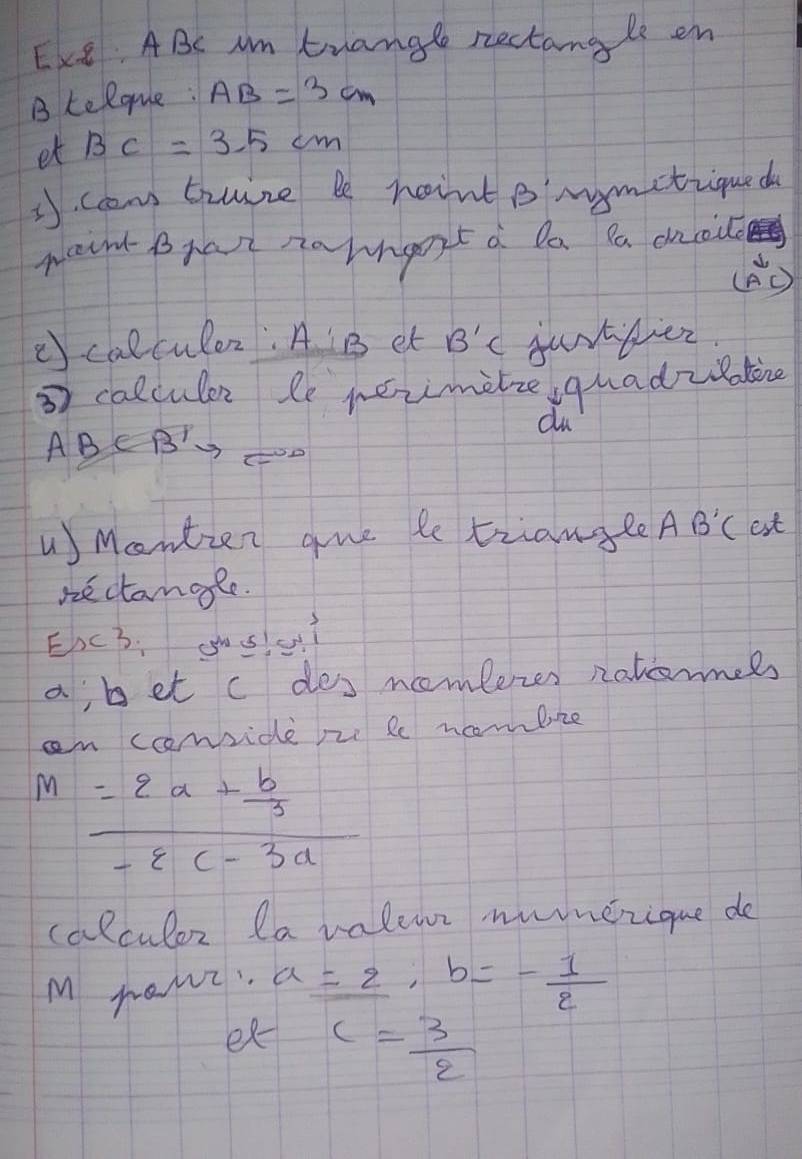 Ex2: ABC un triangle rectangle en
B telque : AB = 3 cm
et BC = 3.5 cm
1). construire le point B' symetrique du
point B par rapport à la la droite
(AC)
2) calculer : A'B et B'C justifier.
3) calculer le périmètre quadrilatère
du
ABCB'
4) Montrer que le triangle AB'C est
réctangle.
Ex3:
a; b et c des nombres rationnels
on considère le nombre
M = 2a + b/3
-2c - 3a
calculer la valeur numérique de
M pour : a = 2 ; b = - 1/2
et c = 3/2